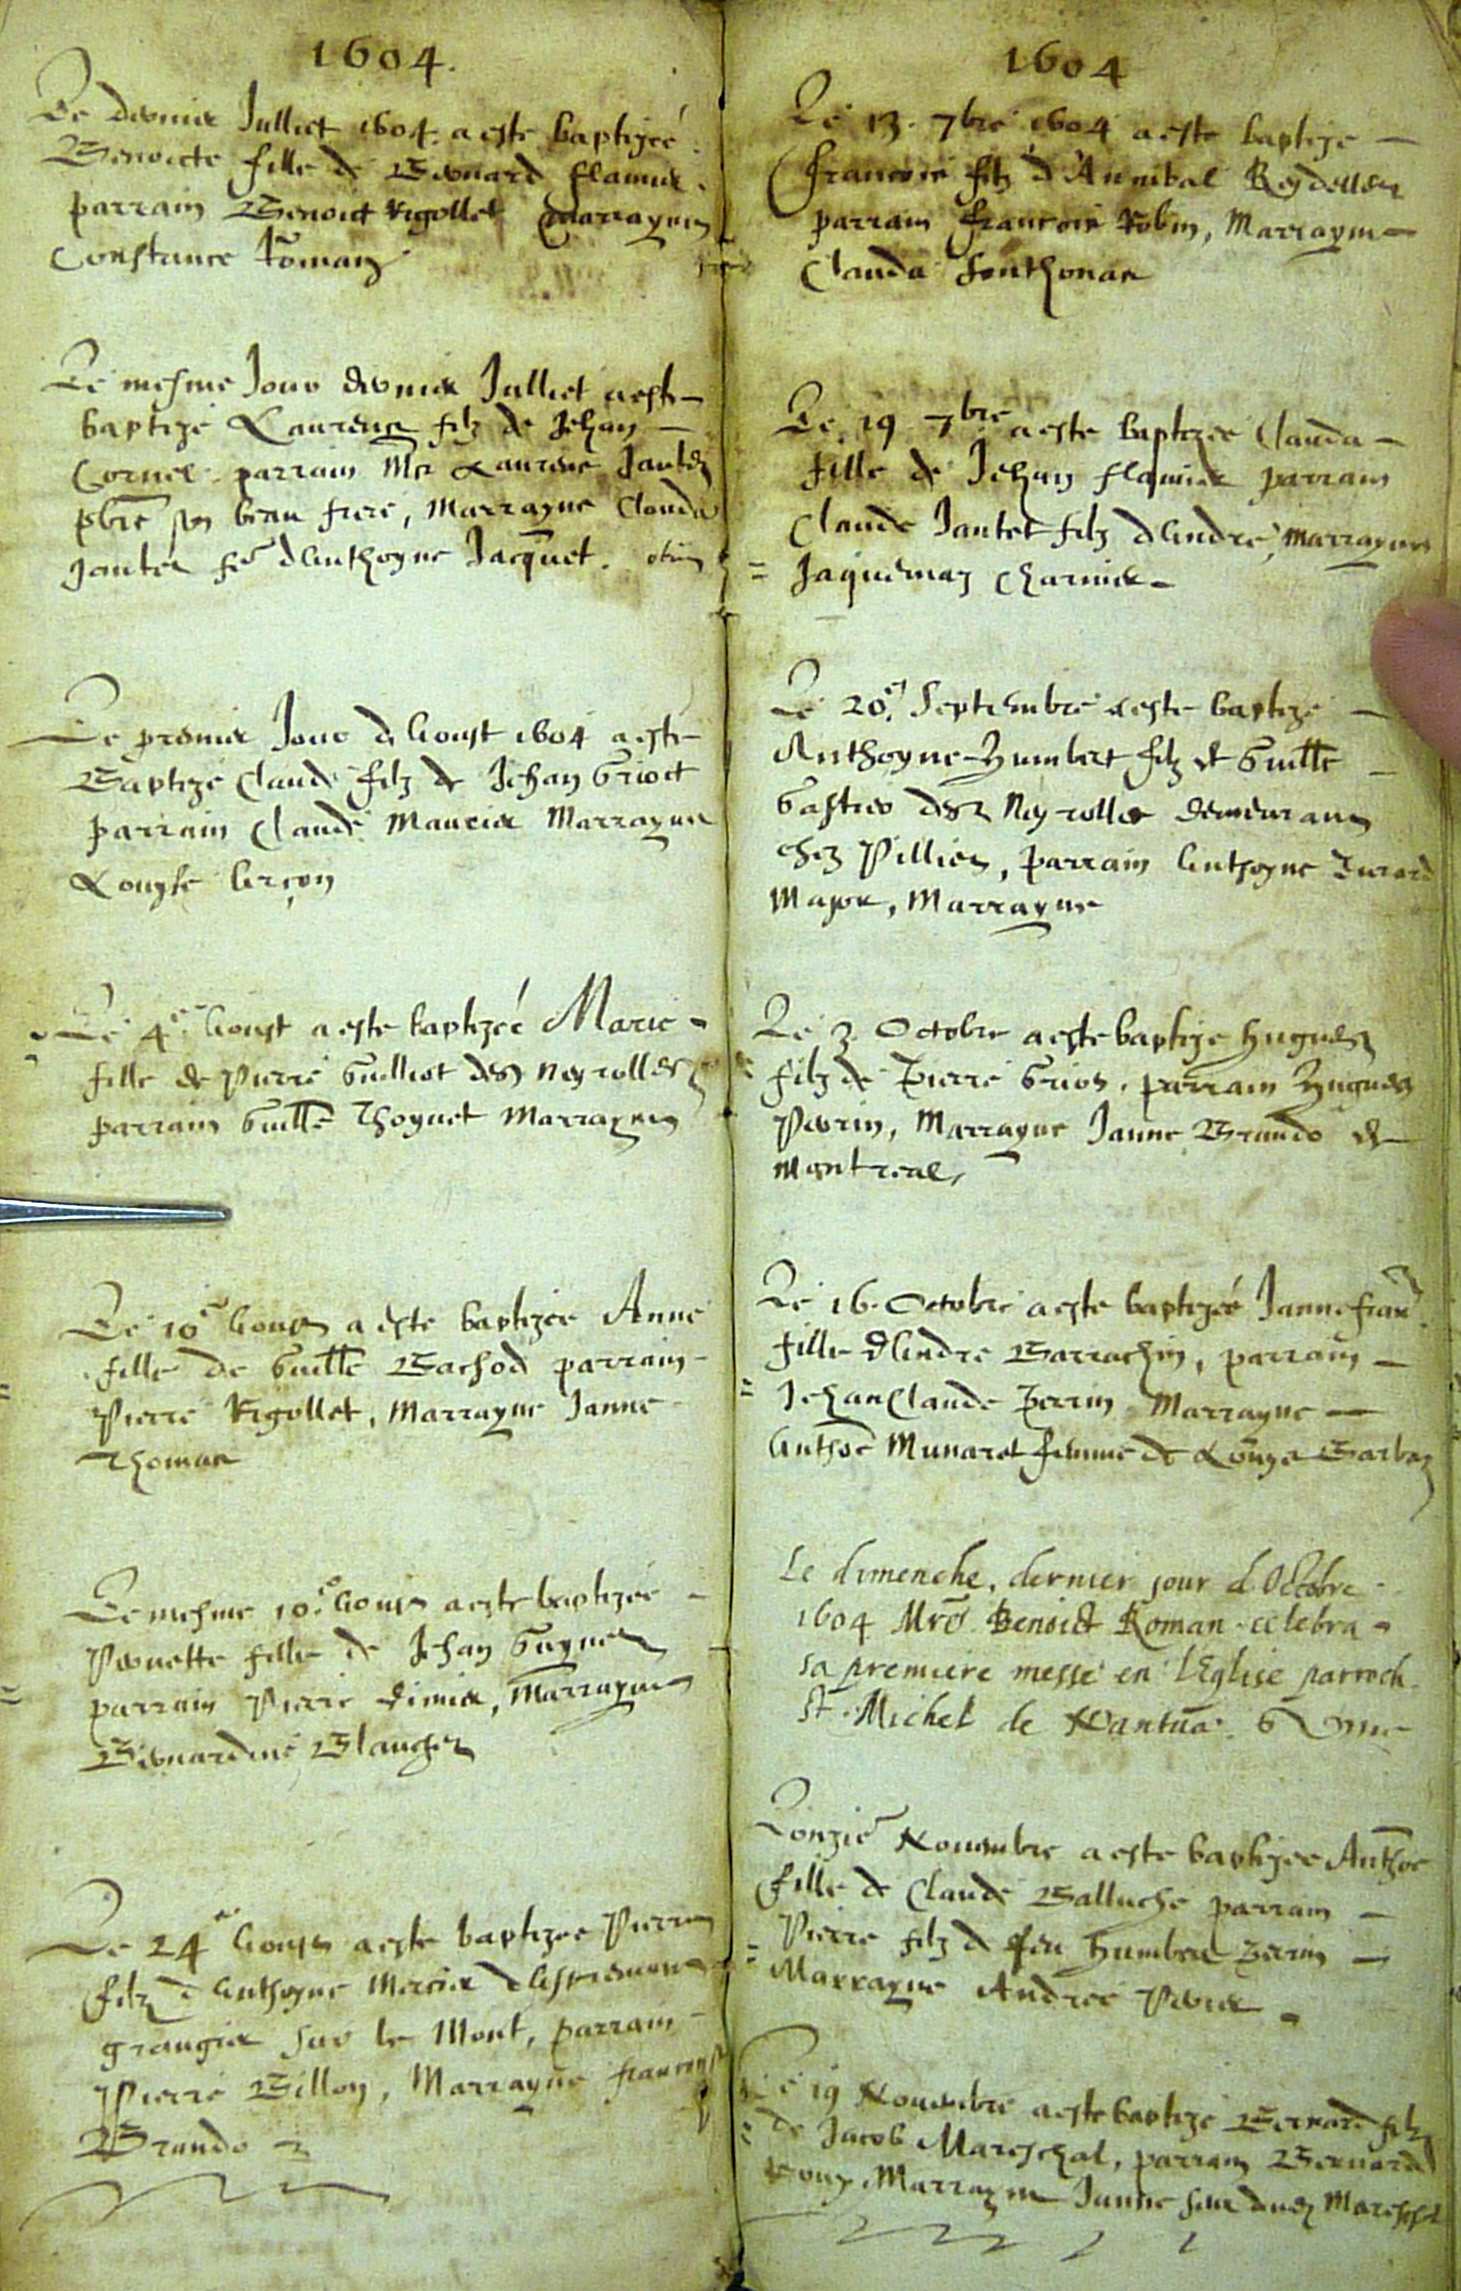 1604.
Le dernier Julliet 1604. a este baptizeé
Benoicte fille de Bernard flamier.
parrain Benoict Rigollet Marrayne
Constance Roman
Le mesme Jour dernier Julliet a este
baptizé Laurens filz de Jehan
Cornet. parrain Mre Laurens Jantet
pbre son beau frere, Marrayne Clauda
Jantet fe d'Anthoyne Jacquet.
Le premier Jour d'Aoust 1604 a este
Baptizé Claude filz de Jehan Griot
parrain Claude Maurier Marrayne
Louyse
Le 4e Aoust a este baptizeé Marie
fille de Pierre Guilliot des Neyrolles
parrain Guille Thoynet Marrayne
Le 10e Aoust a este baptizée Anne
fille de Guille Bachod parrain
Pierre Rigollet, Marrayne Janne
Thomas
Le mesme 10e Aoust a este baptizeé
Pernette fille de Jehan Guynet
parrain Pierre Marrayne
Bernardine Blanchet
Le 24e Aoust a este baptize Pierre
filz d'Anthoyne Mercier
grangier sur le Mont, parrain
Pierre Billon, Marrayne francoyse
Brando
1604
Le 13. 7bre 1604 a este baptize
francois filz d'Annibal Reydellet
parrain francois Robin, Marrayne
Clauda fonthonas
Le 19 7bre a este baptizée Clauda
fille de Jehan flamier parrain
Claude Jantet filz d'Andre, Marrayne
Jaquemaz Charnier
Le 20e. Septembre a este baptizé
Anthoyne-Humbert filz de Guille
des Neyrolles demeurant
chez Pillier, parrain Anthoyne
Major, Marrayne
Le 3. Octobre a este baptize Hugues
filz de Pierre Griot. parrain Hugues
Perrin, Marrayne Janne Brando de
Montreal,
Le 16. Octobre a este baptizeé Janne fran.
fille d'Andre Barrachin, parrain
Jehan Claude Perrin Marrayne
Anthoe Munaret femme de Louys Barbaz
Le dimenche, dernier jour d'Octobre
1604 Mre Benoict Roman celebra
sa premiere messe en l'Eglise parroch.
St. Michel de Nantua.
L'onzie Nouembre a este baptizee Anthoe
fille de Claude Balluche parrain
Pierre filz d feu Humbert Perrin
Marrayne Andree Perrier
Le 19 Nouembre a este baptizé Bernard filz
de Jacob Mareschal, parrain Bernard
Roux Marrayne Janne Mareschal